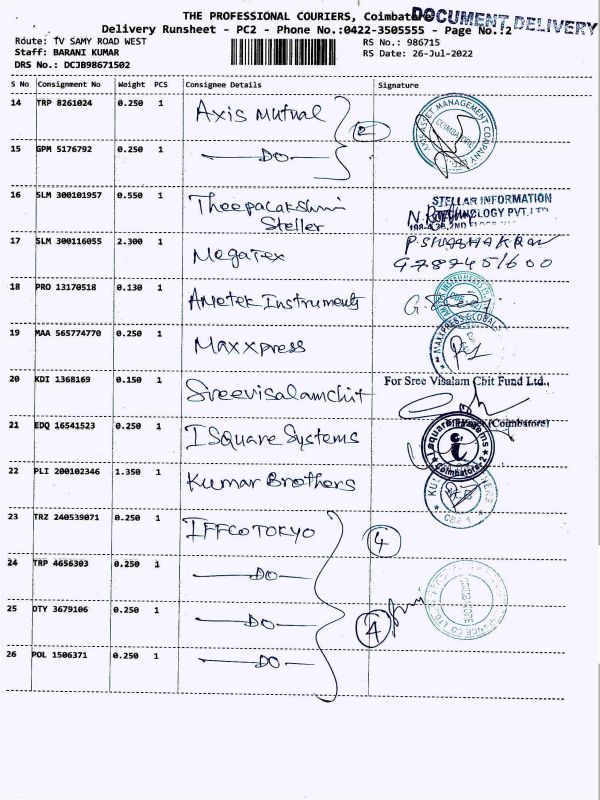 THE PROFESSIONAL COURIERS, Coimbatore
DOCUMENT DELIVERY
Delivery Runsheet - PC2 - Phone No.:0422-3505555 - Page No.:2
Route: TV SAMY ROAD WEST
RS No.: 986715
Staff: BARANI KUMAR
RS Date: 26-Jul-2022
DRS No.: DCJB98671502
S No Consignment No Weight PCS Consignee Details Signature
14 TRP 8261024 0.250 1 Axis Mutual
2
15 GPM 5176792 0.250 1 DO
16 SLM 300101957 0.550 1 Theepalakshmi
Steller
STELLAR INFORMATION
TECHNOLOGY PVT.LTD
17 SLM 300116055 2.300 1 Megatex
18 PRO 13170518 0.130 1 Ametek Instruments
19 MAA 565774770 0.250 1 Maxxpress
MAXXPRESS GLOBAL
20 KDI 1368169 0.150 1 Sreevisalamchit
For Sree Visalam Chit Fund Ltd.,
(Coimbatore)
21 EDQ 16541523 0.250 1 ISquare Systems
Isquare systems
i
Coimbatore-2
22 PLI 200102346 1.350 1 Kumar Brothers
23 TRZ 240539071 0.250 1 IFFCO TOKYO
4
24 TRP 4656303 0.250 1 DO
25 DTY 3679106 0.250 1 DO
4
26 POL 1506371 0.250 1 DO